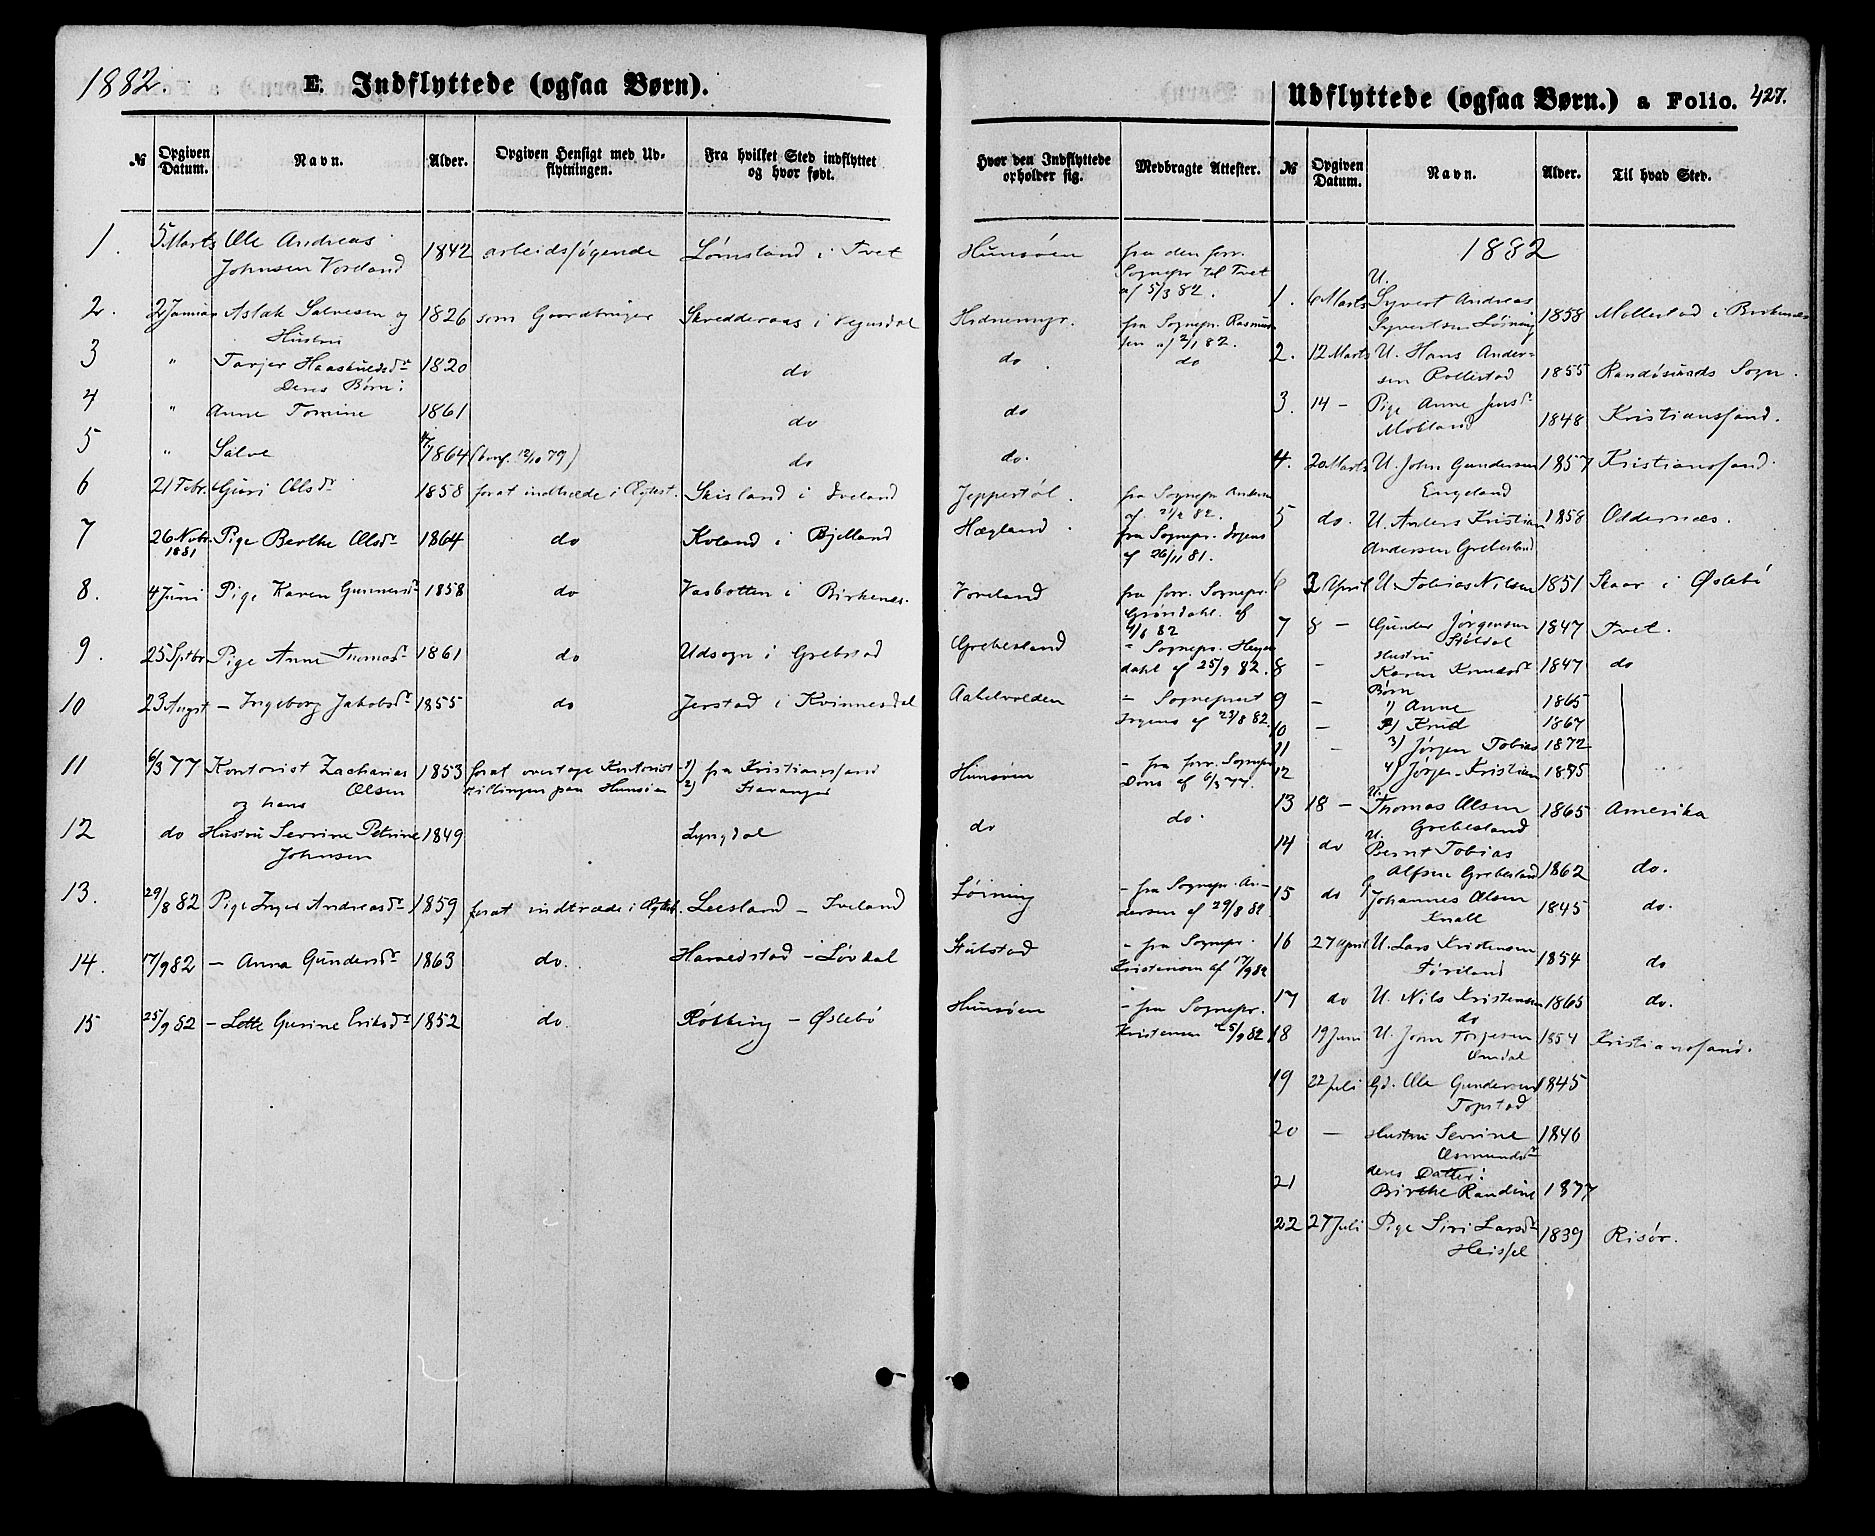 1882.
E. Indflyttede (ogsaa Børn).
№ Opgiven Datum. Navn. Alder. Opgiven Hensigt med Udflytningen. Fra hvilket Sted indflyttet og hvor født. Hvor den Indflyttede opholder sig. Medbragte Attester.
1. 5 Marts Ole Andreas 1842 arbeidssøgende Lømsland i Tvet Hunsøen fra den forr.
Johnsen Voreland Sognepr til Tvet
af 5/3 82.
2. 2 Januar Aslak Salvesen og 1826 som Gaardbruger Skredderaas i Vegusdal Hidnemyr. fra Sognepr. Rasmus-
Hustru sen af 2/1 82.
3 " Tarjer Haaskuldsdr 1820 do do. do
Deres Børn:
4 " Anne Tomine 1861 do do
5 " Salve 1864 (conf. 12/10 79) do do.
6 21 Febr. Guri Olsdr 1858 forat indtræde i Ægtest. Skisland i Iveland Jeppestøl. fra Sognepr Andersen
af 21/2 82.
7 26 Nvbr. Pige Berthe Olsdr 1864 do Kvland i Bjelland Hægland. fra Sognepr. Irgens
1881 af 26/11 81.
8. 4 Juni Pige Karen Gunnersdr 1858 do Vasbotten i Birkenes. Voreland fra forr. Sognepr.
Grøndahl. af
4/6 82
9. 25 Sptbr Pige Anne Thomasdr 1861 do Udsogn i Grebstad Grebesland " Sognepr. Heyer
dahl af 25/9 82.
10 23 Augst — Ingeborg Jakobsdr 1855 do Jerstad i Kvinnesdal Aabelvolden = Sogneprest
Irgens af 23/8 82.
11 6/3 77 Kontorist Zacharias 1853 forat overtage Kontorist- 1) fra Kristianssand Hunsøen - fra forr. Sognepr
Olsen stillingen paa Hunsøen 2) Stavanger Dons af 6/3 77.
og hans
12 do Hustru Sevrine Petrine 1849 Lyngdal do do.
Johnsen
13. 29/8 82 Pige Inger Andreasdr 1859 forat indtræde i Ægtest. Leesland - Iveland Løining - fra Sognepr. An-
dersen af 29/8 82
14. 17/9 82 — Anna Gundersdr 1863 do. Haraldstad - Løvdal Stubstad - fra Sognepr.
Kristensen af 17/9 82
15 25/9 82 — Lotte Gurine Eriksdr 1852 do. Røbbing - Øslebø Hunsøen - fra Sognepr.
Kristensen 25/9 82
Udflyttede (ogsaa Børn.) a Folio. 427.
№ Opgiven Datum. Navn. Alder. Til hvad Sted.
1882
1. 6 Marts U. Syvert Andreas
Syvertsen Løining 1858 Mollestad i Birkenes
2. 12 Marts U. Hans Ander-
sen Rollestad 1855 Randøsunds Sogn.
3. 14 — Pige Anne Jensdr
Mobland 1848 Kristianssand.
4. 20 Marts U. John Gundersen 1857 Kristianssand.
Engeland
5 do. U. Anders Kristian 1858 Oddernæs.
Andersen Grebesland
6 3 April U. Tobias Nilsen 1851 Skaar i Øslebø
7 8 — Gunder Jørgensen 1847 Tvet.
Støldal
8 — Hustru
Karen Knudsdr 1847 do
Børn
9 — 1) Anne 1865
10 — 2) Knud 1867
11 — 3) Jørgen Tobias 1872
12 4) Jørgen Kristian 1875
13 18 — U. Thomas Olsen 1865 Amerika
Grebesland
14 do U. Bernt Tobias
Alfsen Grebesland 1862 do.
15 do Johannes Olsen
Knall 1845 do.
16 27 April U. Lars Kristensen
Føreland 1854 do
17 do U. Nils Kristensen 1865 do.
do
18 19 Juni U. Jorn Torjesen 1854 Kristianssand.
Omdal
19 22 Juli Gd. Ole Gundersen 1845
Topstad
20 — Hustru Sevrine 1846
Osmundsdr
deres Datter:
21 Birthe Randine 1877
22 27 Juli Pige Siri Larsdr 1839 Risør.
Heissel